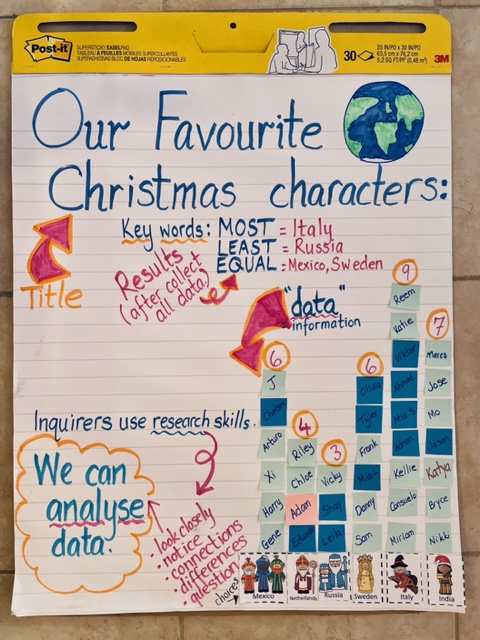 Post-it
SUPERSTICKY EASEL PAD
30
25 IN/PO x 30 IN/PO
63,5 cm x 76,2 cm
5.2 SQ FT/Pi² (0,48 m²)
3M
Our Favourite
Christmas characters:
Key words: MOST = Italy
LEAST = Russia
EQUAL = Mexico, Sweden
Results
(after collect
all data)
Title
"data"
information
Inquirers use research skills.
We can
analyse
data.
- look closely
- notice
- connections
- differences
- question
choices
6
J
Arturo
Xi
Harry
Gene
Mexico
4
Riley
Chloe
Adam
Netherlands
3
Vicky
Shay
Leila
Russia
6
Olivia
Tyler
Frank
Danny
Sam
Sweden
9
Reem
Katie
Viktor
Adrian
Kellie
Consuelo
Miriam
Italy
7
Marco
Jose
Mo
Jason
Katya
Bryce
Nikki
India